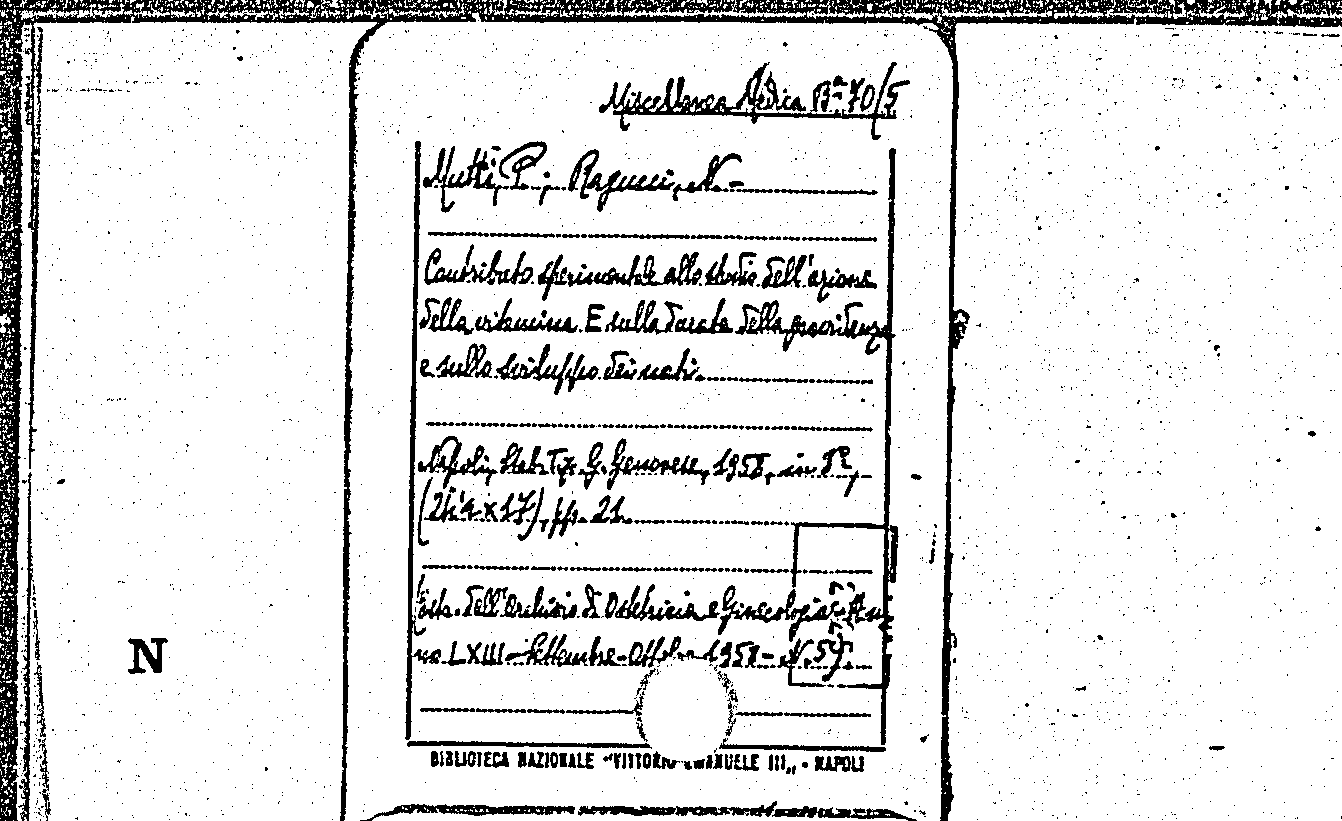 Miscellanea Medica Bª 70/5
Mutti, P.; Ragucci, N. -
Contributo sperimentale allo studio dell'azione
della vitamina E sulla durata della gravidanza
e sullo sviluppo dei nati.
Napoli, Stab. Tip. G. Genovese, 1958, in 8º,
(24'4 x 17), pp. 21.
dell'Archivio di Ostetricia e Ginecologia - An
no LXIII - Settembre - Ottobre 1958 - N. 5).
N
BIBLIOTECA NAZIONALE "VITTORIO EMANUELE III„ - NAPOLI